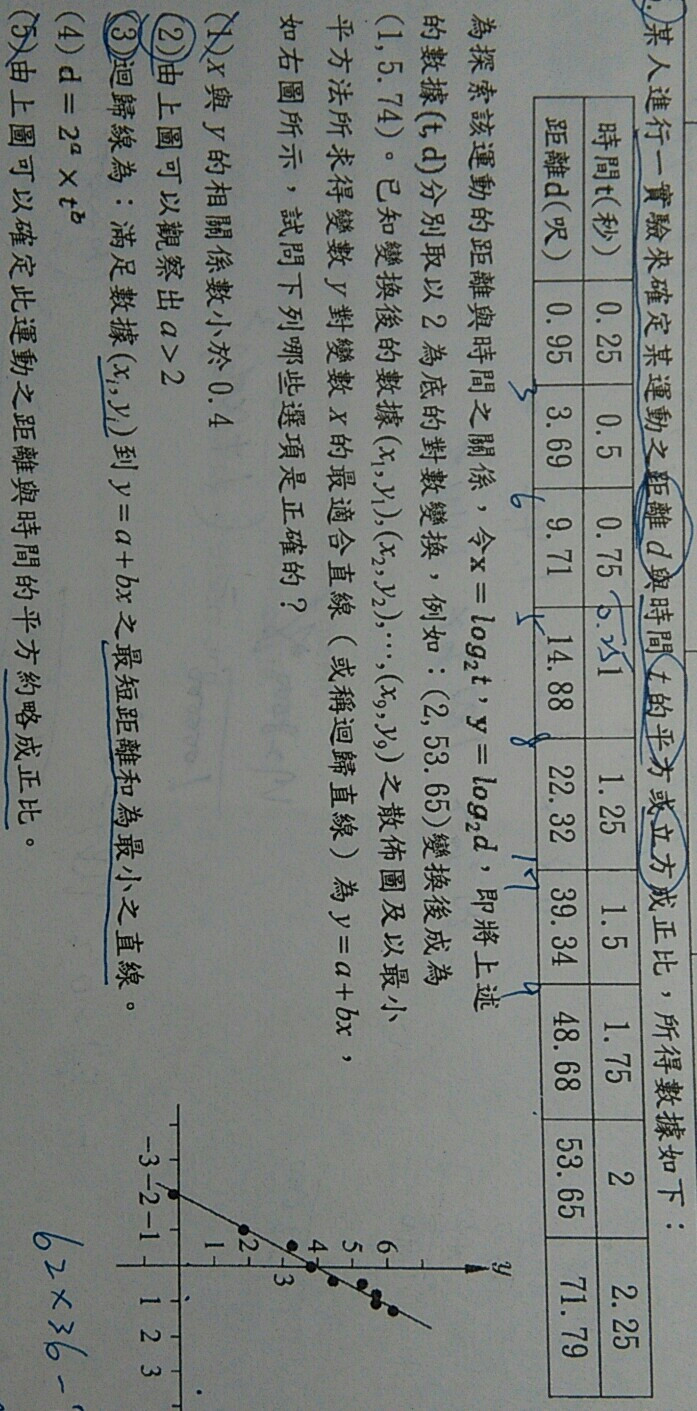 某人進行一實驗來確定某運動之距離d與時間t的平方或立方成正比，所得數據如下：
時間t(秒) 0.25 0.5 0.75 1 1.25 1.5 1.75 2 2.25
距離d(呎) 0.95 3.69 9.71 14.88 22.32 39.34 48.68 53.65 71.79
為探索該運動的距離與時間之關係，令x=log₂t，y=log₂d，即將上述
的數據(t,d)分別取以2為底的對數變換，例如：(2,53.65)變換後成為
(1,5.74)。已知變換後的數據(x₁,y₁),(x₂,y₂),…,(x₉,y₉)之散佈圖及以最小
平方法所求得變數y對變數x的最適合直線（或稱迴歸直線）為y=a+bx，
如右圖所示，試問下列哪些選項是正確的？
(1)x與y的相關係數小於0.4
(2)由上圖可以觀察出a>2
(3)迴歸線為：滿足數據(xᵢ,yᵢ)到y=a+bx之最短距離和為最小之直線。
(4) d=2ᵃ×tᵇ
(5)由上圖可以確定此運動之距離與時間的平方約略成正比。
y
6
5
4
3
2
1
-3 -2 -1 1 2 3
62×36-